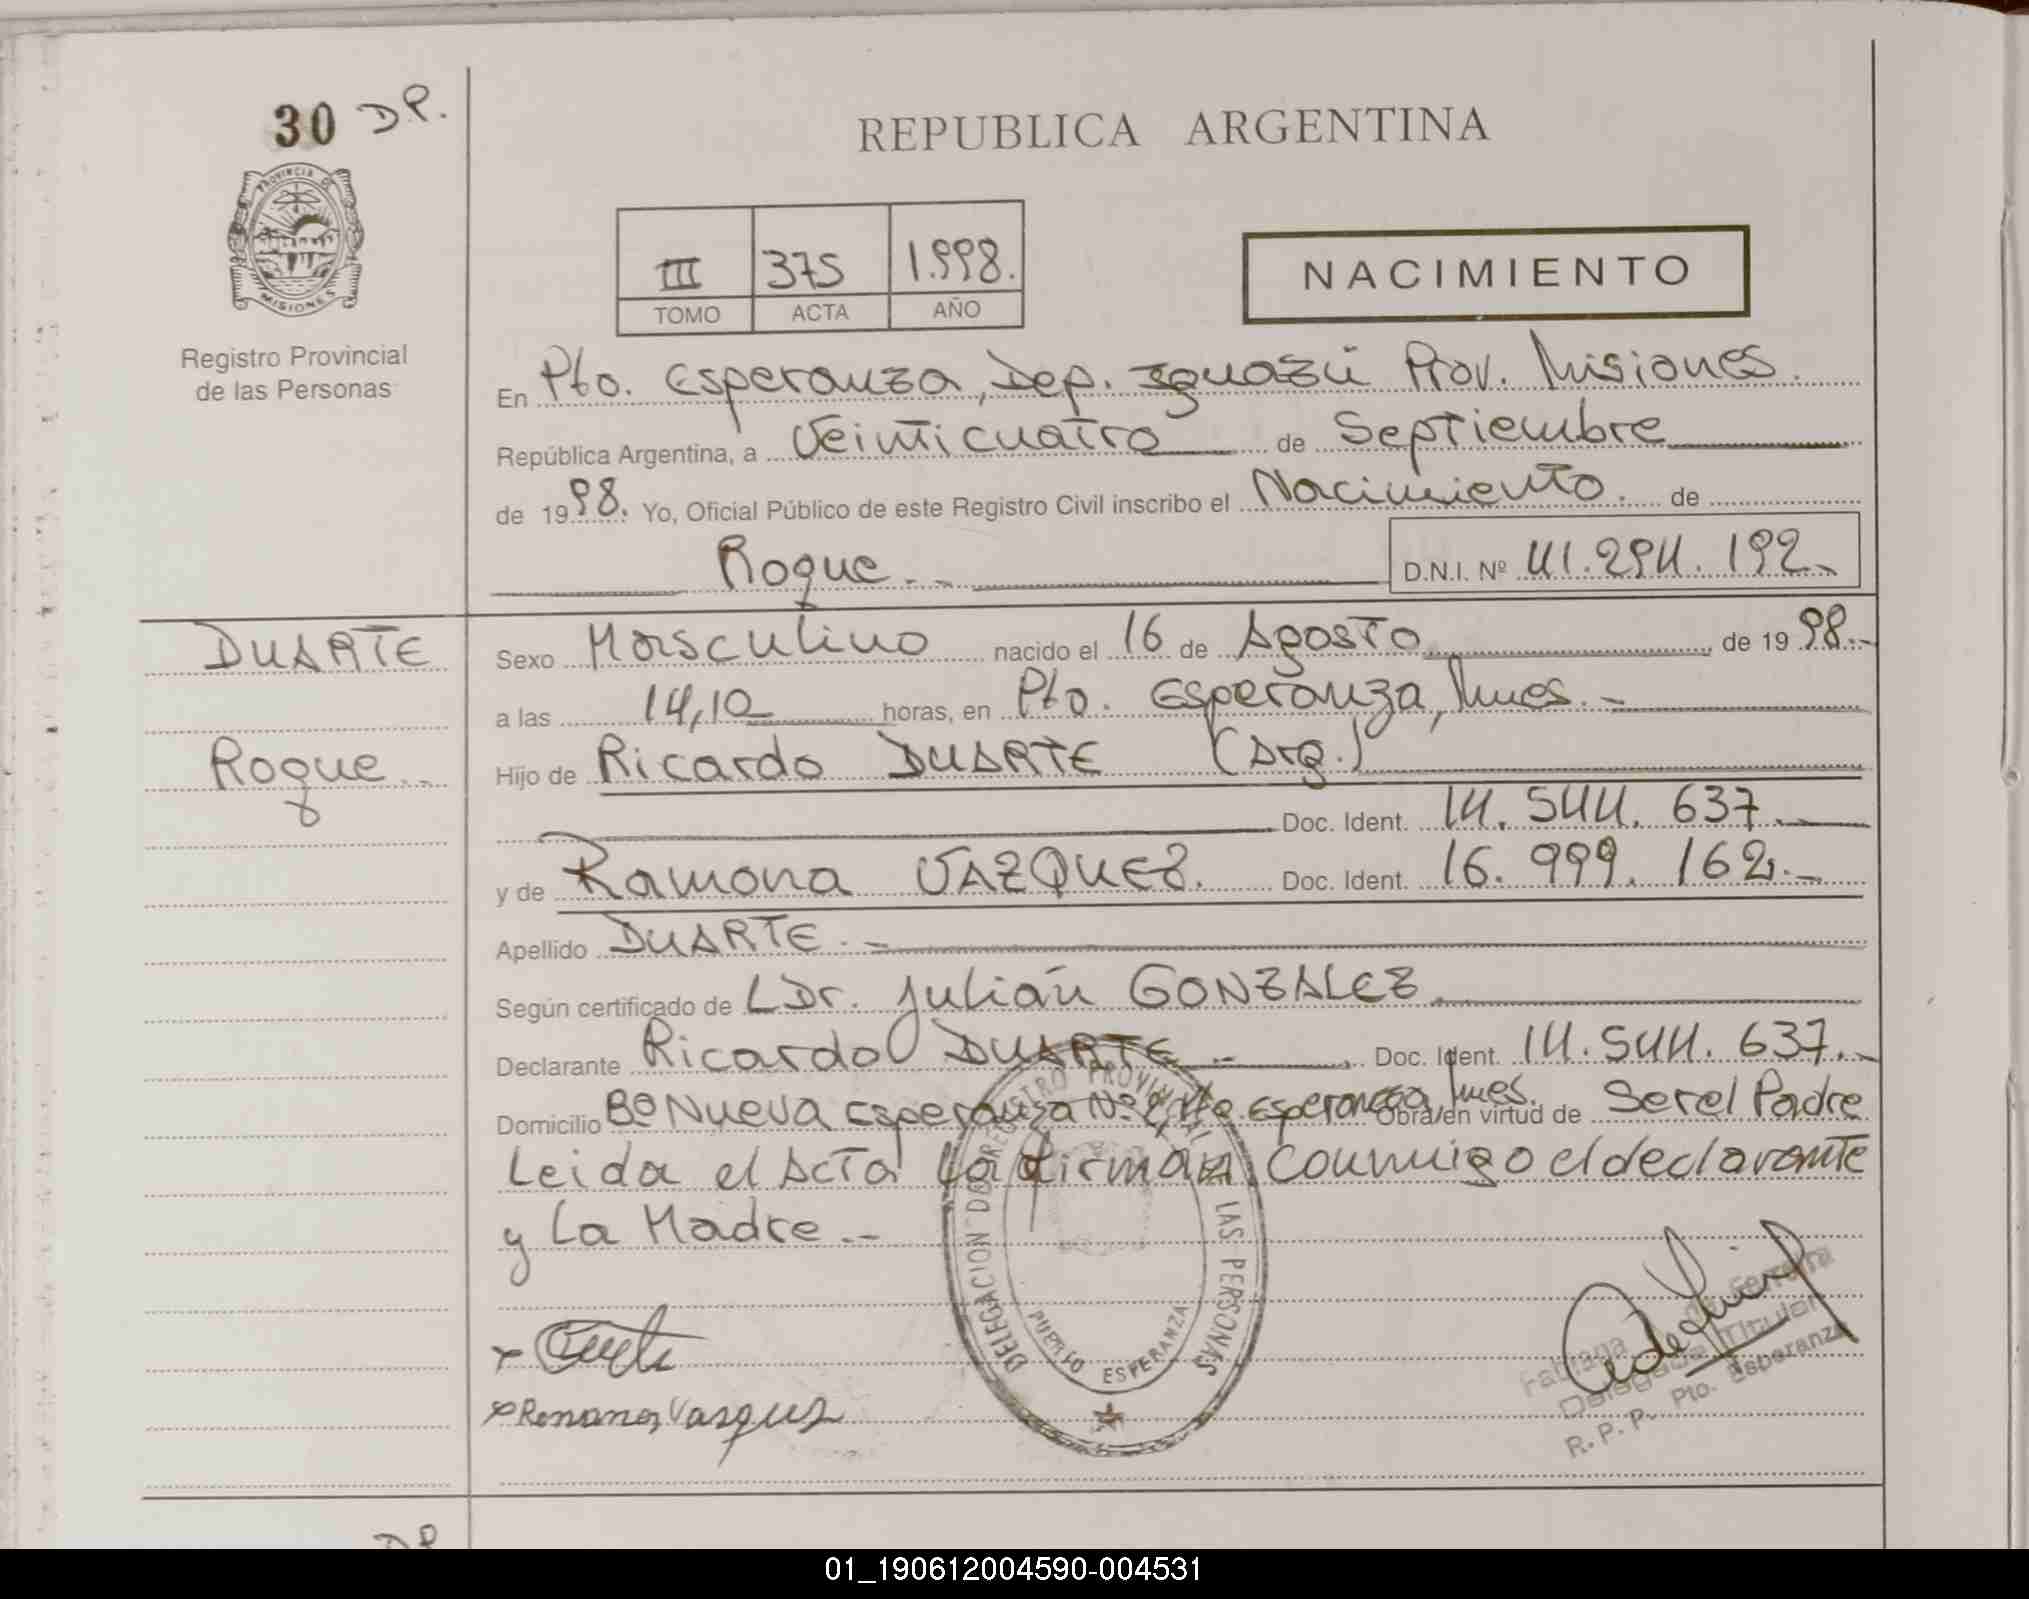 30 D.P.
REPUBLICA ARGENTINA
PROVINCIA DE MISIONES
III 375 1.998.
TOMO ACTA AÑO
NACIMIENTO
Registro Provincial
de las Personas
En Pto. Esperanza, Dep. Iguazú Prov. Misiones.
República Argentina, a Veinticuatro de Septiembre
de 1998. Yo, Oficial Público de este Registro Civil inscribo el Nacimiento. de
Roque.- D.N.I. Nº 41.294.192.-
DUARTE
Roque.-
Sexo Masculino nacido el 16 de Agosto de 1998.-
a las 14,10 horas, en Pto. Esperanza, Mnes.-
Hijo de Ricardo DUARTE (Arg.)
Doc. Ident. 14.544.637.-
y de Ramona VAZQUEZ. Doc. Ident. 16.999.162.-
Apellido DUARTE.-
Según certificado de LDr. Julián GONZALEZ
Declarante Ricardo DUARTE.- Doc. Ident. 14.544.637.-
Domicilio Bº Nueva Esperanza Nº Pto. Esperanza Mnes. Obra/en virtud de Ser el Padre
Leida el Acta la firman Conmigo el declarante
y La Madre.-
DELEGACION DEL REGISTRO PROVINCIAL DE LAS PERSONAS
PUERTO ESPERANZA
x
x Ramona Vasquez
Fabiana Ferreira
Delegada Titular
R.P.P. Pto. Esperanza
D.P.
01_190612004590-004531